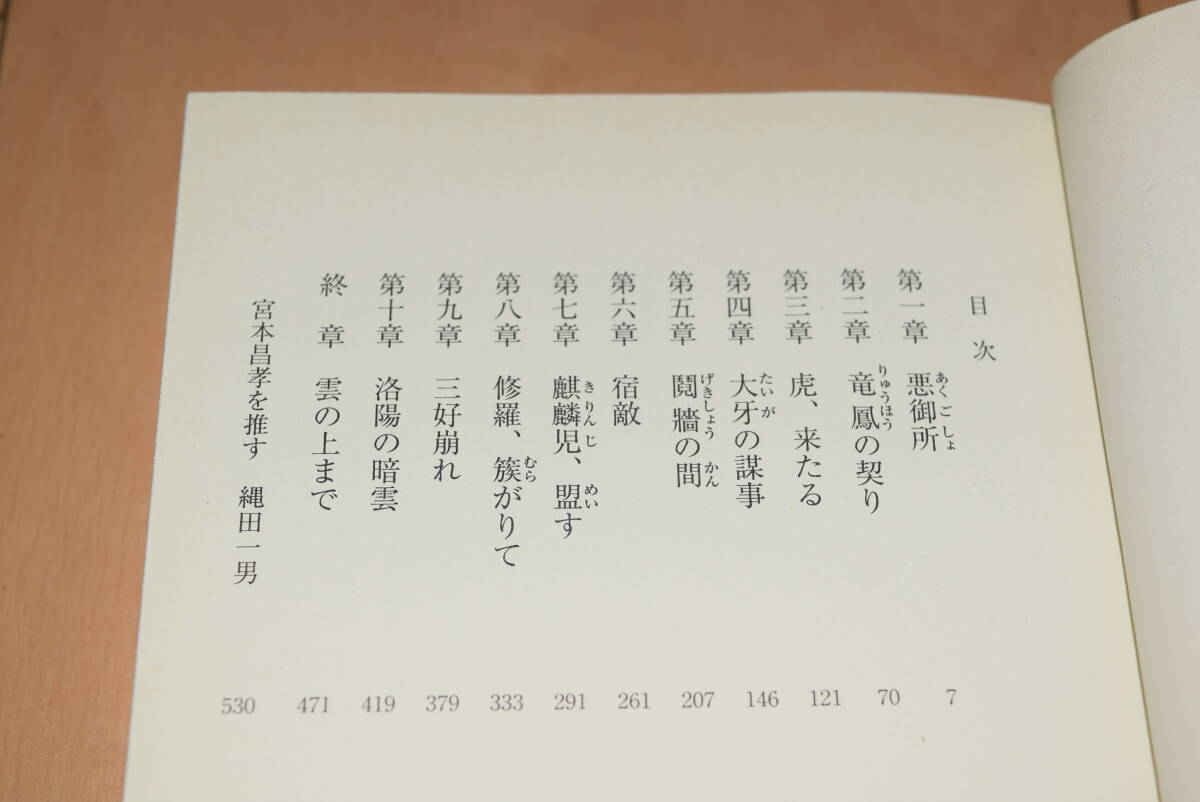 目次
第一章 悪御所 7
第二章 竜鳳の契り 70
第三章 虎、来たる 121
第四章 大牙の謀事 146
第五章 鬩牆の間 207
第六章 宿敵 261
第七章 麒麟児、盟す 291
第八章 修羅、簇がりて 333
第九章 三好崩れ 379
第十章 洛陽の暗雲 419
終章 雲の上まで 471
宮本昌孝を推す 縄田一男 530